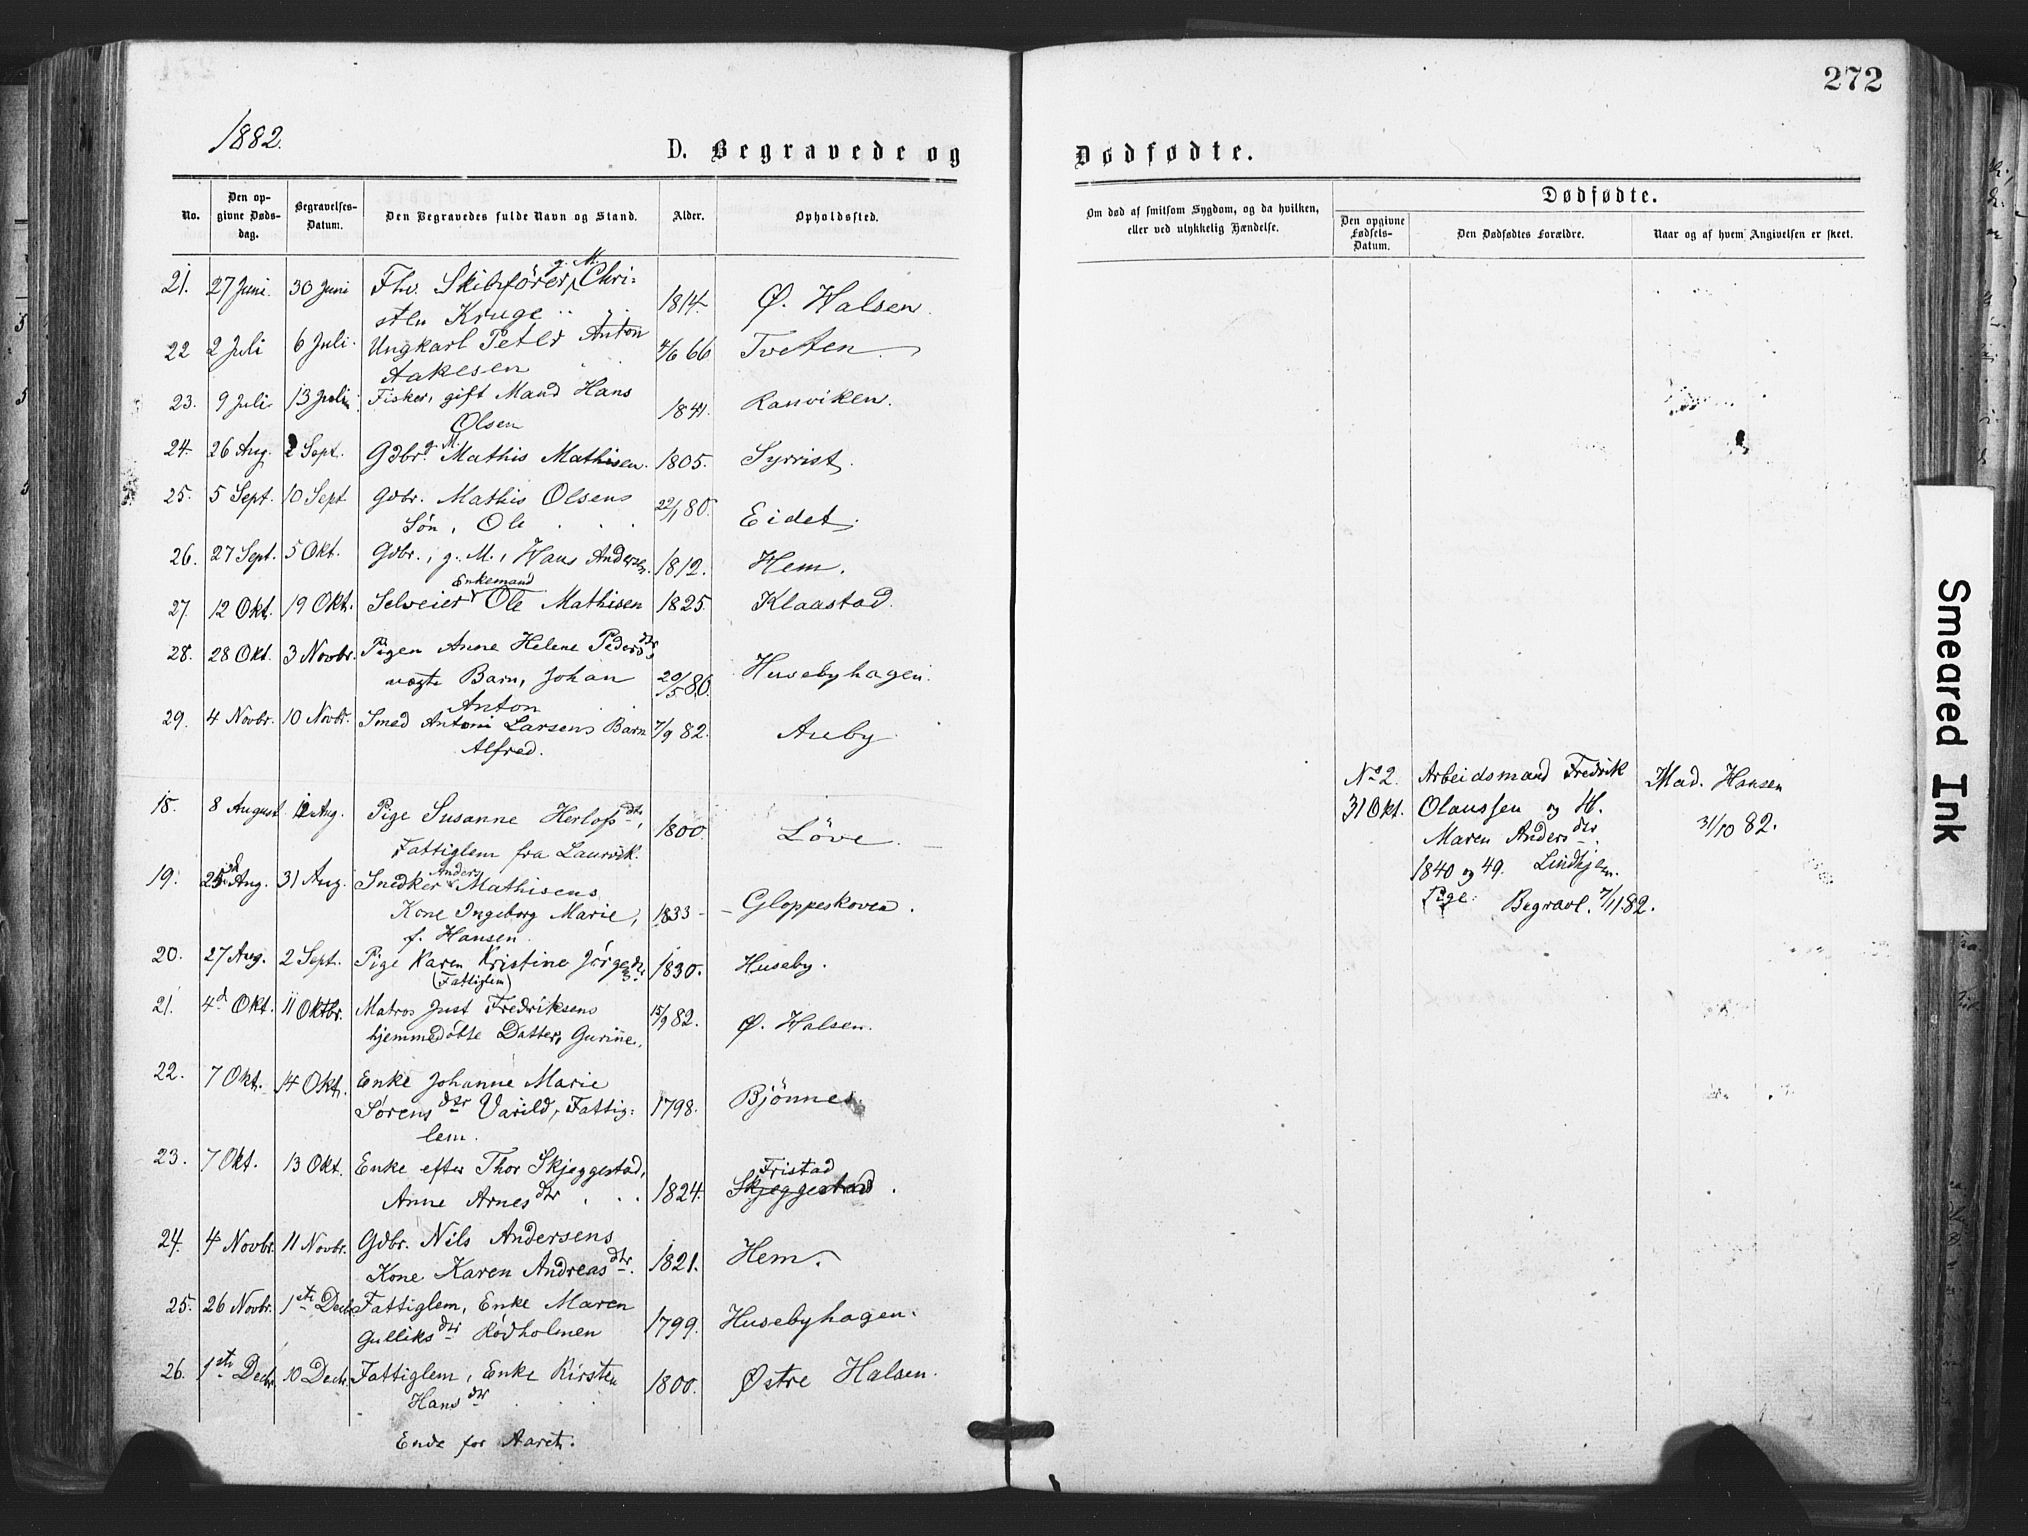 272
1882.
D. Begravede og Dødfødte.
No. Den opgivne Dødsdag. Begravelses-Datum. Den Begravedes fulde Navn og Stand. Alder. Opholdssted.
Om død af smitsom Sygdom, og da hvilken, eller ved ulykkelig Hændelse.
Dødfødte.
Den opgivne Fødsels-Datum. Den Dødfødtes Forældre. Naar og af hvem Angivelsen er skeet.
21. 27 Juni. 30 Juni Fhv. Skibsfører, g. M. Chri-
sten Kruge 1814. Ø. Halsen.
22 2 Juli 6 Juli. Ungkarl Peter Anton
Aakesen 4/6 66 Tveten
23. 9 Juli 13 Juli Fisker, gift Mand Hans
Olsen 1841. Ranviken.
24. 26 Aug. 2 Sept. Gdbr. g. M. Mathis Mathisen. 1805. Syrrist.
25. 5 Sept. 10 Sept Gdbr. Mathis Olsens
Søn, Ole 22/1 80. Eidet,
26. 27 Sept. 5 Okt. Gdbr., g. M., Hans Andersen. 1812. Hem.
27. 12 Okt. 19 Okt. Selveier Enkemand Ole Mathisen 1825. Klaastad.
28. 28 Okt. 3 Novbr. Pigen Anne Helene Pedersdtr
uægte Barn, Johan
Anton 20/5 80. Husebyhagen.
29. 4 Novbr. 10 Novbr. Smed Anton Larsens Barn
Alfred. 7/9 82. Auby.
18. 8 August 12 Aug. Pige Susanne Herlofsdtr,
Fattiglem fra Laurvik. 1800. Løve.
19. Aug. 31 Aug. Snedker Anders Mathisens
Kone Ingeborg Marie,
f. Hansen. 1833 - Gloppeskoven.
20. 27 Aug. 2 Sept. Pige Karen Kristine Jørgensdtr
(Fattiglem) 1830. Huseby.
21. 4d Okt. 11 Oktbr. Matros Just Fredriksens
hjemmedøbte Datter, Gurine. 15/9 82. Ø. Halsen.
22. 7 Okt. 14 Okt. Enke Johanne Marie
Sørensdtr Varild, Fattig-
lem. 1798. Bjønnes.
23. 7 Okt. 13 Okt. Enke efter Thor Skjeggestad,
Anne Arnesdtr 1824. Fristad Skjeggestad.
24. 4 Novbr. 11 Novbr. Gdbr. Nils Andersens
Kone Karen Andreasdtr. 1821. Hem.
25. 26 Novbr. 1ste Decb. Fattiglem, Enke Maren
Gulliksdtr Rødholmen 1799. Husebyhagen.
26. 1ste Decbr. 10 Decbr. Fattiglem, Enke Kirsten
Hansdtr 1800. Østre Halsen.
Ende for Aaret.
No 2. Arbeidsmand Fredrik Mad. Hansen
31 Okt. Olaussen og H. 31/10 82.
Maren Andersdtr.
1840 og 49. Lindhjem.
Pige. Begravt. 7/11 82.
Smeared Ink